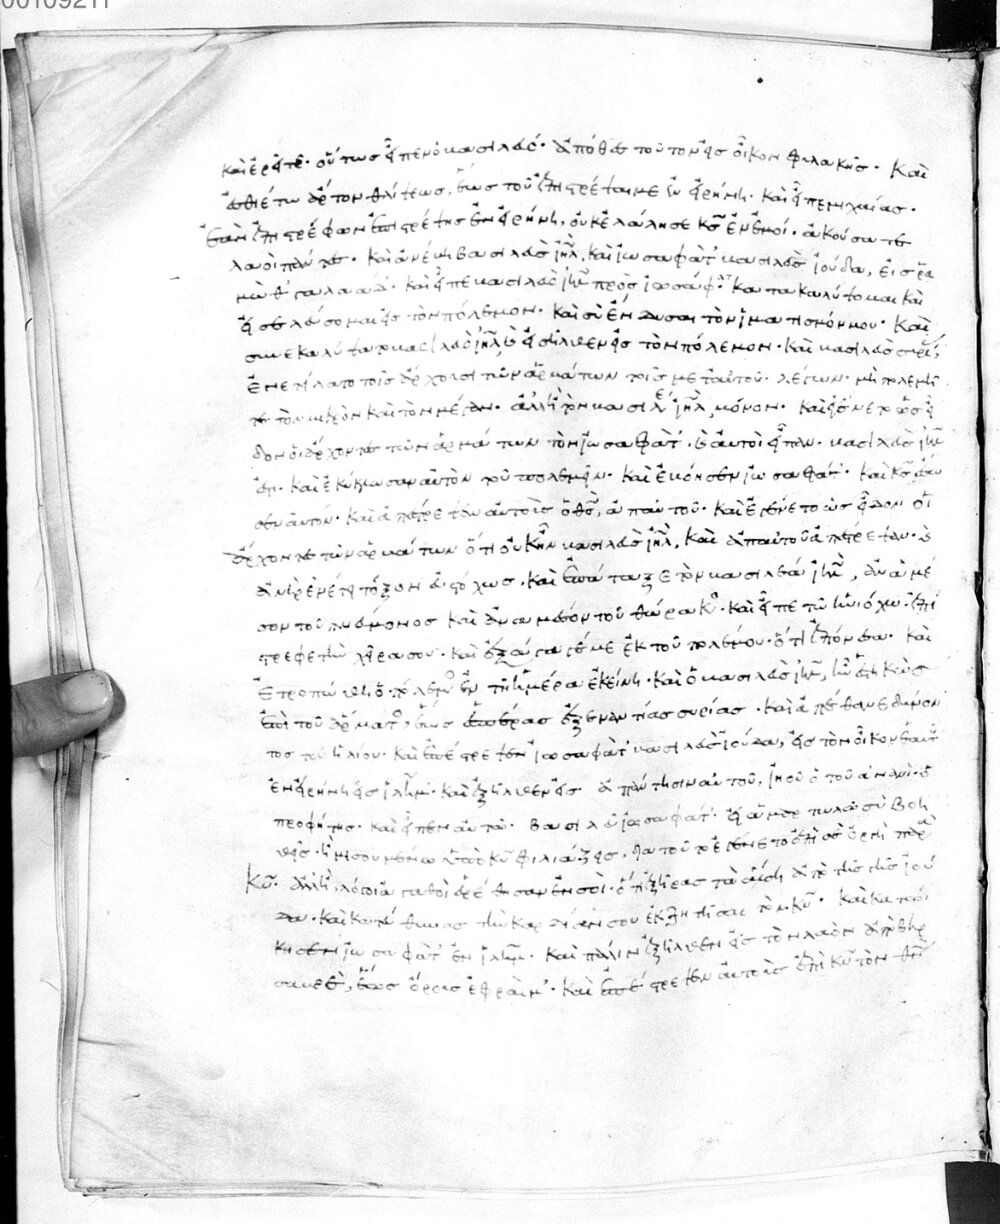 00109211
καὶ ἐρεῖτε· οὕτως εἶπεν ὁ βασιλεύς· ἀπόθεσθε τοῦτον εἰς οἶκον φυλακῆς· καὶ
ἐσθιέτω ἄρτον θλίψεως, ἕως τοῦ ἐπιστρέψαι με ἐν εἰρήνῃ· καὶ εἶπε μιχαίας·
ἐὰν ἐπιστρέφων ἐπιστρέψῃς ἐν εἰρήνῃ, οὐκ ἐλάλησε κς ἐν ἐμοί· ἀκούσατε
λαοὶ πάντες· καὶ ἀνέβη βασιλεὺς ιηλ, καὶ ἰωσαφὰτ βασιλεὺς ἰούδα, εἰς ρα
μὼθ γαλαάδ· καὶ εἶπε βασιλεὺς ιηλ πρὸς ἰωσαφάτ· κατακαλύψομαι καὶ
εἰσελεύσομαι εἰς τὸν πόλεμον· καὶ σὺ ἔνδυσαι τὸν ἱματισμόν μου· καὶ
συνεκαλύψατο βασιλεὺς ιηλ, καὶ εἰσῆλθεν εἰς τὸν πόλεμον· καὶ βασιλεὺς συρίας
ἐνετείλατο τοῖς ἄρχουσι τῶν ἁρμάτων τοῖς μετ αὐτοῦ· λέγων· μὴ πολεμεῖ
τε τὸν μικρὸν καὶ τὸν μέγαν· ἀλλ ἢ τὸν βασιλέα ιηλ, μόνον· καὶ ἐγένετο ὡς εἶ
δον οἱ ἄρχοντες τῶν ἁρμάτων τὸν ἰωσαφάτ· καὶ αὐτοὶ εἶπον· βασιλεὺς ιηλ
ἐστι· καὶ ἐκύκλωσαν αὐτὸν τοῦ πολεμεῖν· καὶ ἐβόησεν ἰωσαφάτ· καὶ κς ἔσω
σεν αὐτόν· καὶ ἀπέστρεψεν αὐτοὺς ὁ θς, ἀπ αὐτοῦ· καὶ ἐγένετο ὡς εἶδον οἱ
ἄρχοντες τῶν ἁρμάτων ὅτι οὐκ ἦν βασιλεὺς ιηλ, καὶ ἀπ αὐτοῦ ἀπέστρεψαν· καὶ
ἀνὴρ ἐνέτεινε τόξον εὐστόχως· καὶ ἐπάταξε τὸν βασιλέα ιηλ, ἀνὰ μέ
σον τοῦ πνεύμονος καὶ ἀνὰ μέσον τοῦ θώρακος· καὶ εἶπε τῷ ἡνιόχῳ· ἐπί
στρεφε τὴν χεῖρα σου· καὶ ἐξάγαγέ με ἐκ τοῦ πολέμου· ὅτι ἐπόνεσα· καὶ
ἐτροπώθη ὁ πόλεμος ἐν τῇ ἡμέρᾳ ἐκείνῃ· καὶ ὁ βασιλεὺς ιηλ, ἦν ἑστηκὼς
ἐπὶ τοῦ ἅρματος, ἕως ἑσπέρας ἐξεναντίας συρίας· καὶ ἀπέθανε δύνον
τος τοῦ ἡλίου· καὶ ἐπέστρεψεν ἰωσαφὰτ βασιλεὺς ἰούδα, εἰς τὸν οἶκον ἑαυτοῦ
ἐν εἰρήνῃ εἰς ιλημ· καὶ ἐξῆλθεν εἰς ἀπάντησιν αὐτοῦ, ἰηοὺ ὁ τοῦ ἀνανὶ ὁ
προφήτης· καὶ εἶπεν αὐτῷ· βασιλεῦ ἰωσαφάτ· εἰ ἁμαρτωλῷ σὺ βοη
θεῖς· ἢ μισουμένῳ ὑπὸ κυ φιλιάζεις, διὰ τοῦτο ἐγένετο ἐπὶ σὲ ὀργὴ παρὰ
κυ· ἀλλ ἢ λόγοι ἀγαθοὶ εὑρέθησαν ἐν σοί· ὅτι ἐξῆρας τὰ ἄλση ἀπὸ τῆς γῆς ἰού
δα· καὶ κατεύθυνας τὴν καρδίαν σου ἐκζητῆσαι τὸν κν· καὶ κατῴ
κησεν ἰωσαφὰτ ἐν ιλημ· καὶ πάλιν ἐξῆλθεν εἰς τὸν λαὸν ἀπὸ βηρ
σαβεὲ, ἕως ὄρους ἐφραΐμ· καὶ ἐπέστρεψεν αὐτοὺς ἐπὶ κν τὸν θν